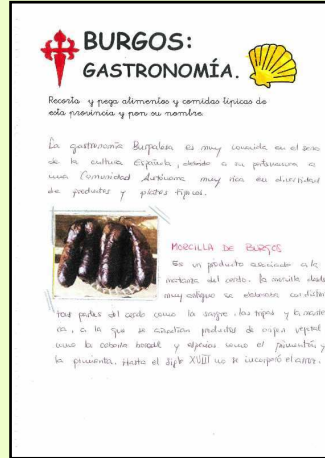 BURGOS:
GASTRONOMÍA.
Recorta y pega alimentos y comidas típicas de
esta provincia y pon su nombre.
La gastronomía Burgalesa es muy conocida en el seno
de la cultura Española, debido a su pertenencia a
una Comunidad Autónoma muy rica en diversidad
de productos y platos típicos.
MORCILLA DE BURGOS
Es un producto asociado a la
matanza del cerdo. la morcilla desde
muy antiguo se elaboraba con
partes del cerdo como la sangre, las tripas y la
, a la que se añadían productos de origen vegetal
como la cebolla horcal y especias como el pimentón y
la pimienta. Hasta el siglo XVIII no se incorporó el arroz.